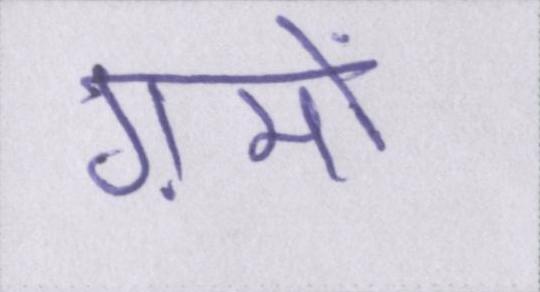 ग़मों